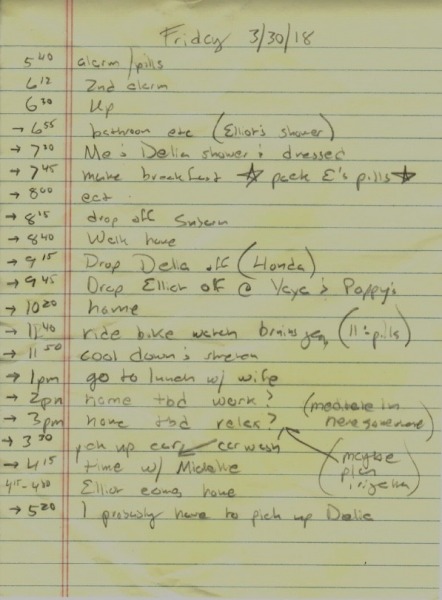 Friday 3/30/18
5⁴⁰ alarm/pills
6¹² 2nd alarm
6³⁰ Up
→ 6⁵⁵ bathroom etc (Elliot's shower)
→ 7³⁰ Me & Delia shower & dressed
→ 7⁴⁵ make breakfast ☆ pack E's pills ☆
→ 8⁰⁰ eat
→ 8¹⁵ drop off
→ 8⁴⁰ Walk home
→ 9¹⁵ Drop Delia off (Honda)
→ 9⁴⁵ Drop Elliot off @ Yaya & Pappy's
→ 10²⁰ home
→ 11⁴⁰ ride bike watch (11:pills)
→ 11⁵⁰ cool down &
→ 1pm go to lunch w/ wife
→ 2pm home tbd work? (meditate in
→ 3pm home tbd relax?
→ 3³⁰ pick up car, car wash (maybe
→ 4¹⁵ time w/ plan
4¹⁵-4³⁰ Elliot comes home
→ 5²⁰ I probably have to pick up Delia